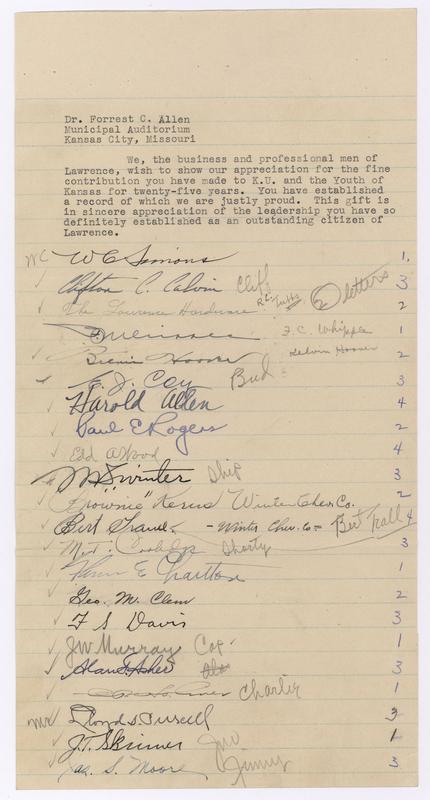 Dr. Forrest C. Allen
Municipal Auditorium
Kansas City, Missouri
We, the business and professional men of
Lawrence, wish to show our appreciation for the fine
contribution you have made to K.U. and the Youth of
Kansas for twenty-five years. You have established
a record of which we are justly proud. This gift is
in sincere appreciation of the leadership you have so
definitely established as an outstanding citizen of
Lawrence.
WC W C Simons 1
Clifton C. Calvin Cliff 3
The Lawrence Hardware 2 letters 2
1
Hoover 2
E. J. Cey Bud 3
Harold Allen 4
Paul E Rogers 2
Edd 4
Winter Skip 3
"Brownie" Winter Chev. Co. 2
Bert - Winter Chev. Co - Bert 4
Shorty 3
E Charlton 1
Geo. M. Clem 2
F S Davis 3
JW Murray 1
Alan Asher 3
Charlie 1
Lloyd S. 3
J. T. Skinner 1
Jas. S. Moore Jimmy 3